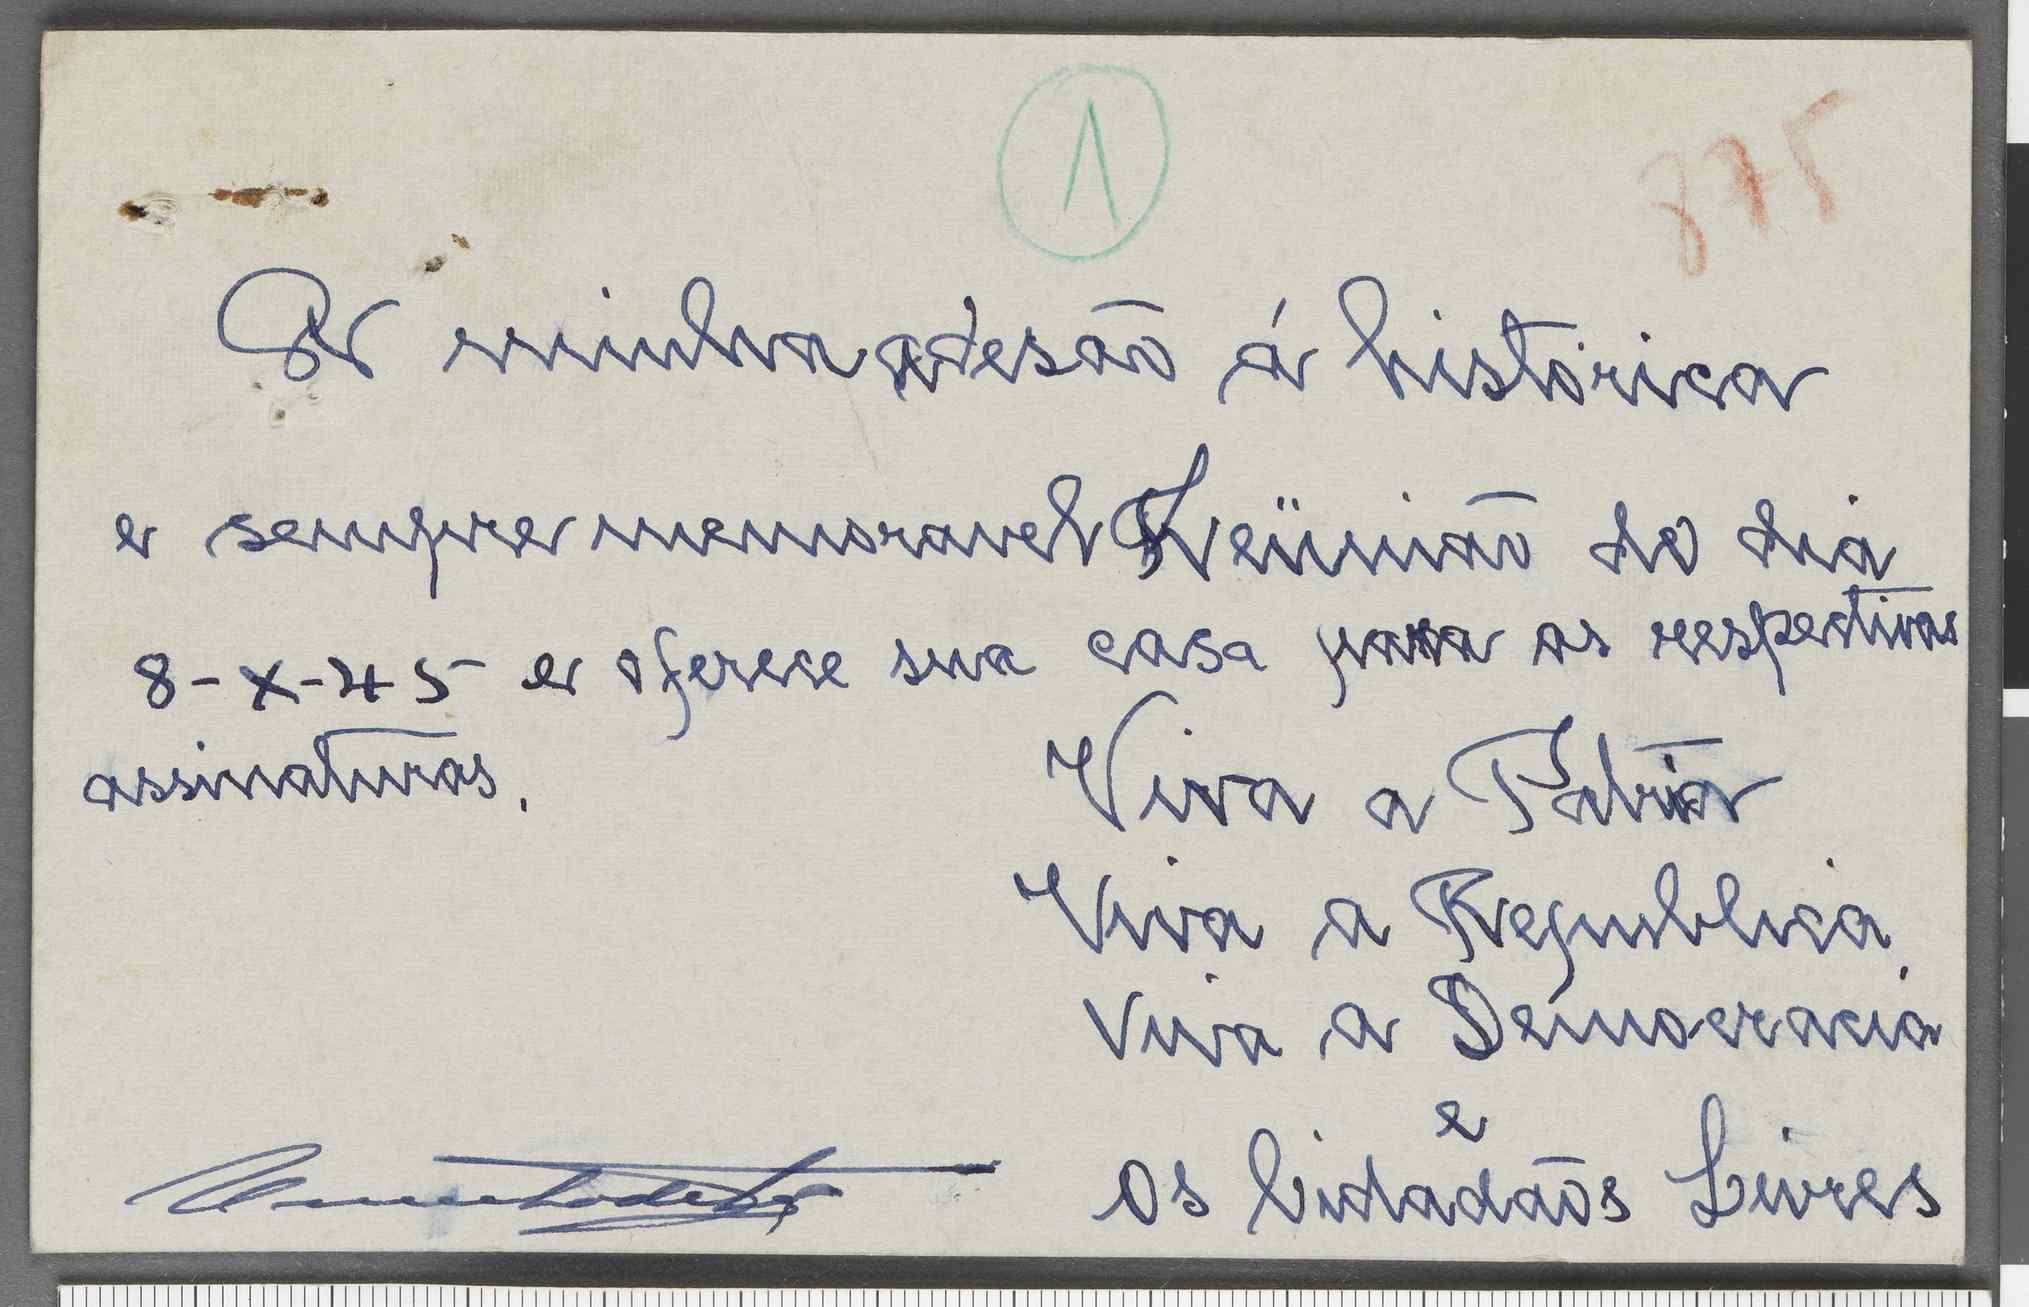 1
875
A minha adesão á histórica
e sempre memoravel Reünião do dia
8-X-45 e oferece sua casa para as respectivas
assinaturas.
Viva a Patria
Viva a Republica,
Viva a Democracia
e
Os Cidadãos Livres